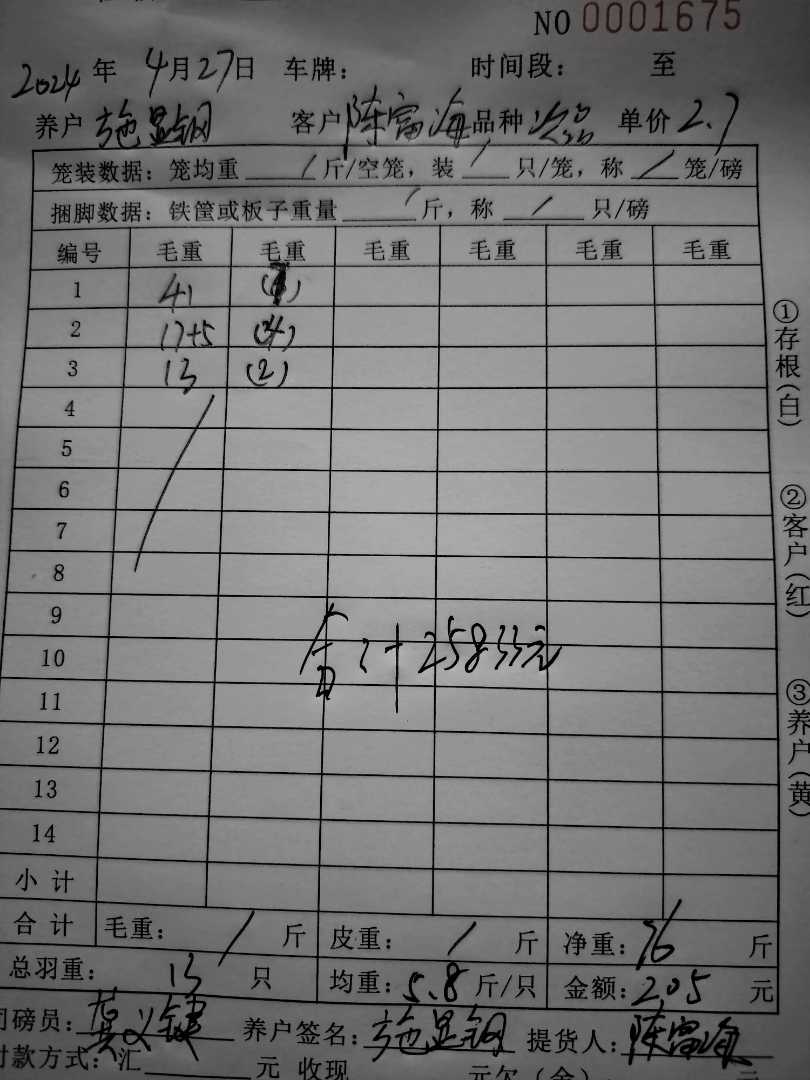 NO 0001675
2024年 4月27日 车牌: 时间段: 至
养户 施显钢 客户 陈富海 品种 次品 单价 2.7
笼装数据: 笼均重 / 斤/空笼, 装 / 只/笼, 称 / 笼/磅
捆脚数据: 铁筐或板子重量 / 斤, 称 / 只/磅
编号 毛重 毛重 毛重 毛重 毛重 毛重
1 41 (7)
2 17+5 (4)
3 13 (2)
4
5
6
7
8
9
10 合计 25833元
11
12
13
14
小计
合计 毛重: / 斤 皮重: / 斤 净重: 76 斤
总羽重: 13 只 均重: 5.8 斤/只 金额: 205 元
司磅员: 龚义键 养户签名: 施显钢 提货人: 陈富海
付款方式: 汇 元 收现 元欠(余) 元
①存根(白)
②客户(红)
③养户(黄)